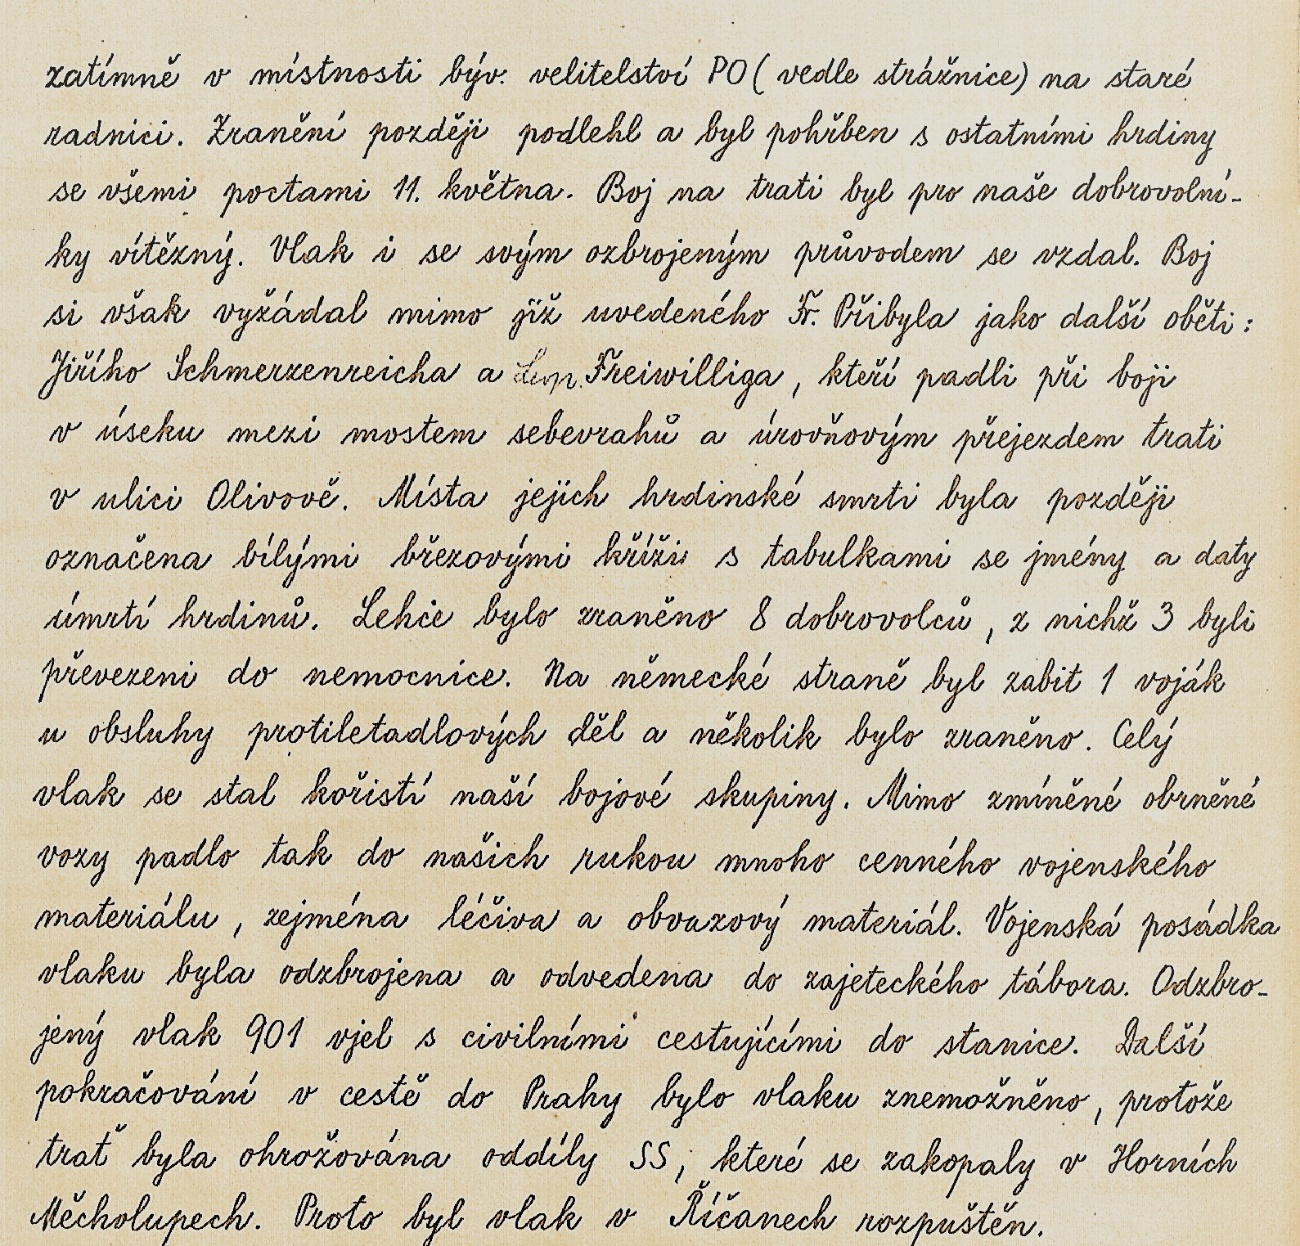 zatímně v místnosti býv. velitelství PO (vedle strážnice) na staré
radnici. Zranění později podlehl a byl pohřben s ostatními hrdiny
se všemi poctami 11. května. Boj na trati byl pro naše dobrovolní-
ky vítězný. Vlak i se svým ozbrojeným průvodem se vzdal. Boj
si však vyžádal mimo již uvedeného Fr. Přibyla jako další oběti:
Jiřího Schmerzenreicha a Freiwilliga, kteří padli při boji
v úseku mezi mostem sebevrahů a úrovňovým přejezdem trati
v ulici Olivově. Místa jejich hrdinské smrti byla později
označena bílými březovými kříži s tabulkami se jmény a daty
úmrtí hrdinů. Lehce bylo zraněno 8 dobrovolců, z nichž 3 byli
převezeni do nemocnice. Na německé straně byl zabit 1 voják
u obsluhy protiletadlových děl a několik bylo zraněno. Celý
vlak se stal kořistí naší bojové skupiny. Mimo zmíněné obrněné
vozy padlo tak do našich rukou mnoho cenného vojenského
materiálu, zejména léčiva a obvazový materiál. Vojenská posádka
vlaku byla odzbrojena a odvedena do zajeteckého tábora. Odzbro-
jený vlak 901 vjel s civilními cestujícími do stanice. Další
pokračování v cestě do Prahy bylo vlaku znemožněno, protože
trať byla ohrožována oddíly SS, které se zakopaly v Horních
Měcholupech. Proto byl vlak v Říčanech rozpuštěn.